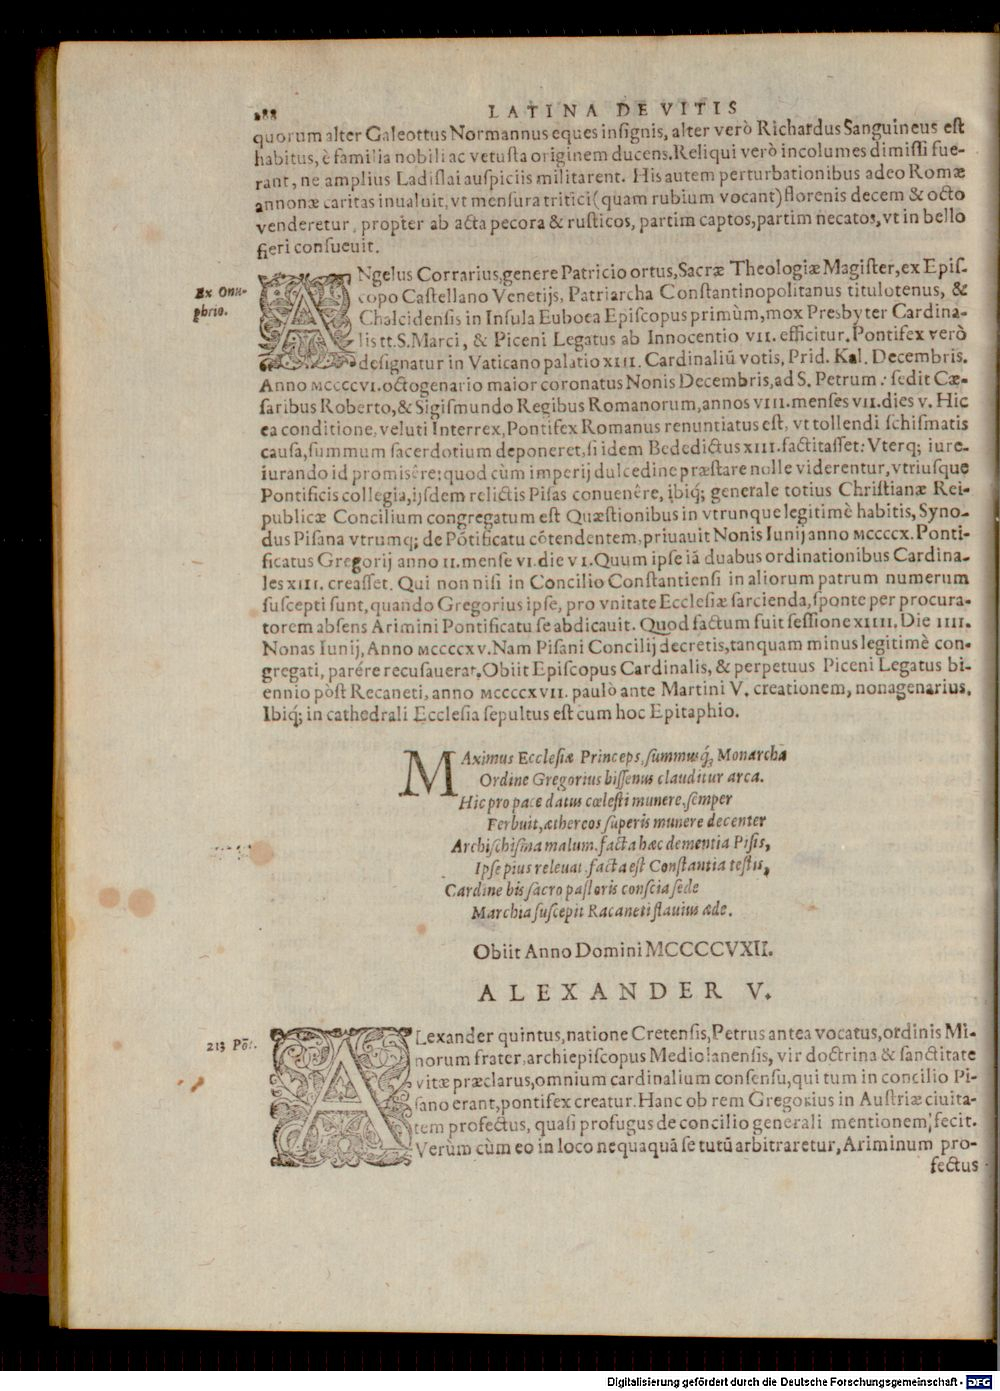 288
LATINA DE VITIS
quorum alter Galeottus Normannus eques insignis, alter verò Richardus Sanguineus est
habitus, è familia nobili ac vetusta originem ducens. Reliqui verò incolumes dimissi fue-
rant, ne amplius Ladislai auspiciis militarent. His autem perturbationibus adeo Romæ
annonæ caritas inualuit, vt mensura tritici (quam rubium vocant) florenis decem & octo
venderetur, propter ab acta pecora & rusticos, partim captos, partim necatos, vt in bello
fieri consueuit.
Ex Onu-
phrio.
ANgelus Corrarius, genere Patricio ortus, Sacræ Theologiæ Magister, ex Epis-
copo Castellano Venetijs, Patriarcha Constantinopolitanus titulotenus, &
Chalcidensis in Insula Euboea Episcopus primùm, mox Presbyter Cardina-
lis tt. S. Marci, & Piceni Legatus ab Innocentio VII. efficitur. Pontifex verò
designatur in Vaticano palatio XIII. Cardinaliū votis, Prid. Kal. Decembris.
Anno MCCCCVI. octogenario maior coronatus Nonis Decembris, ad S. Petrum: sedit Cæ-
saribus Roberto, & Sigismundo Regibus Romanorum, annos VIII. menses VII. dies V. Hic
ea conditione, veluti Interrex, Pontifex Romanus renuntiatus est, vt tollendi schismatis
causa, summum sacerdotium deponeret, si idem Bededictus XIII. factitasset: Vterq; iure-
iurando id promisêre: quod cùm imperij dulcedine præstare nolle viderentur, vtriusque
Pontificis collegia, ijsdem relictis Pisas conuenêre, ibiq́; generale totius Christianæ Rei-
publicæ Concilium congregatum est Quæstionibus in vtrunque legitimè habitis, Syno-
dus Pisana vtrumq; de Pōtificatu cōtendentem, priuauit Nonis Iunij anno MCCCCX. Ponti-
ficatus Gregorij anno II. mense VI. die VI. Quum ipse iā duabus ordinationibus Cardina-
les XIII. creasset. Qui non nisi in Concilio Constantiensi in aliorum patrum numerum
suscepti sunt, quando Gregorius ipse, pro vnitate Ecclesiæ sarcienda, sponte per procura-
torem absens Arimini Pontificatu se abdicauit. Quod factum fuit sessione XIIII. Die IIII.
Nonas Iunij, Anno MCCCCXV. Nam Pisani Concilij decretis, tanquam minus legitimè con-
gregati, parére recusauerat. Obiit Episcopus Cardinalis, & perpetuus Piceni Legatus bi-
ennio pòst Recaneti, anno MCCCCXVII. paulò ante Martini V. creationem, nonagenarius.
Ibiq́; in cathedrali Ecclesia sepultus est cum hoc Epitaphio.
MAximus Ecclesiæ Princeps, summusq́; Monarcha
Ordine Gregorius bissenus clauditur arca.
Hic pro pace datus cœlesti munere, semper
Ferbuit, æthereos superis munere decenter
Archischisma malum, facta hæc dementia Pisis,
Ipse pius releuat, facta est Constantia testis,
Cardine bis sacro pastoris conscia sede
Marchia suscepit Racaneti flauius æde.
Obiit Anno Domini MCCCCVXII.
ALEXANDER V.
213 Pōt.
ALexander quintus, natione Cretensis, Petrus antea vocatus, ordinis Mi-
norum frater, archiepiscopus Mediolanensis, vir doctrina & sanctitate
vitæ præclarus, omnium cardinalium consensu, qui tum in concilio Pi-
sano erant, pontifex creatur. Hanc ob rem Gregorius in Austriæ ciuita-
tem profectus, quasi profugus de concilio generali mentionem fecit.
Verùm cùm eo in loco nequaquā se tutū arbitraretur, Ariminum pro-
fectus
Digitalisierung gefördert durch die Deutsche Forschungsgemeinschaft - DFG